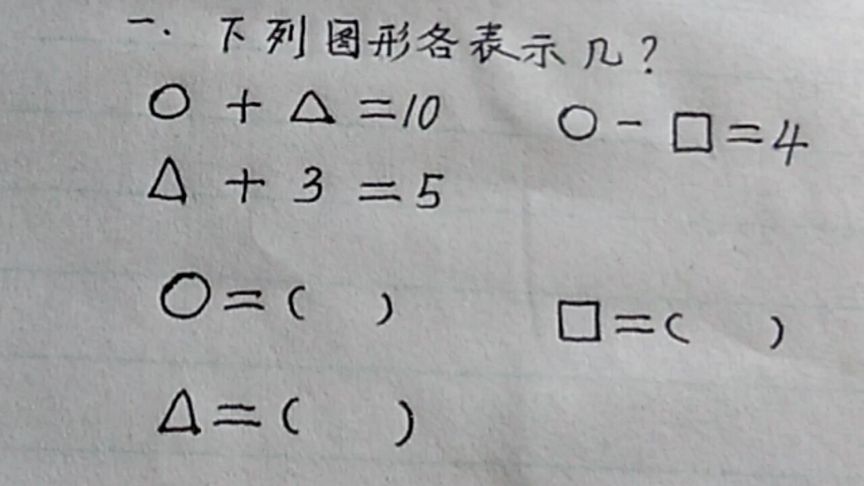 一. 下列图形各表示几?
○ + △ =10
○ - □ = 4
△ + 3 = 5
○ = ( )
□ = ( )
△ = ( )